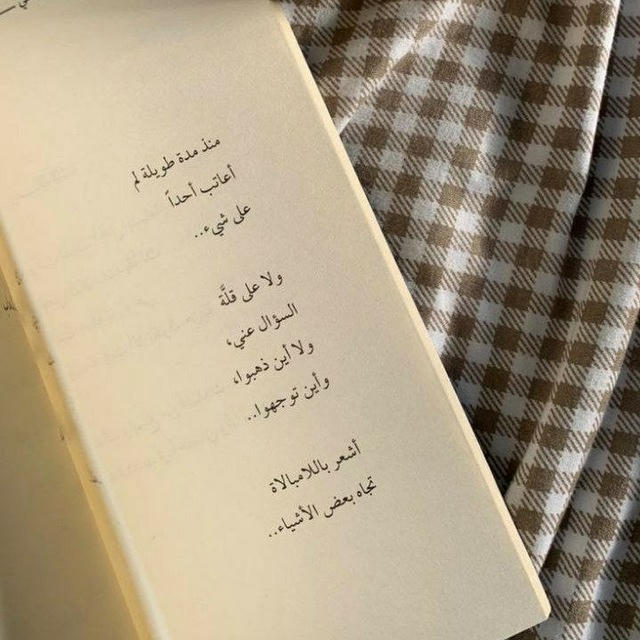 منذ مدة طويلة لم
أعاتب أحداً
على شيء..
ولا على قلَّة
السؤال عني،
ولا أين ذهبوا،
وأين توجهوا..
أشعر باللامبالاة
تجاه بعض الأشياء..